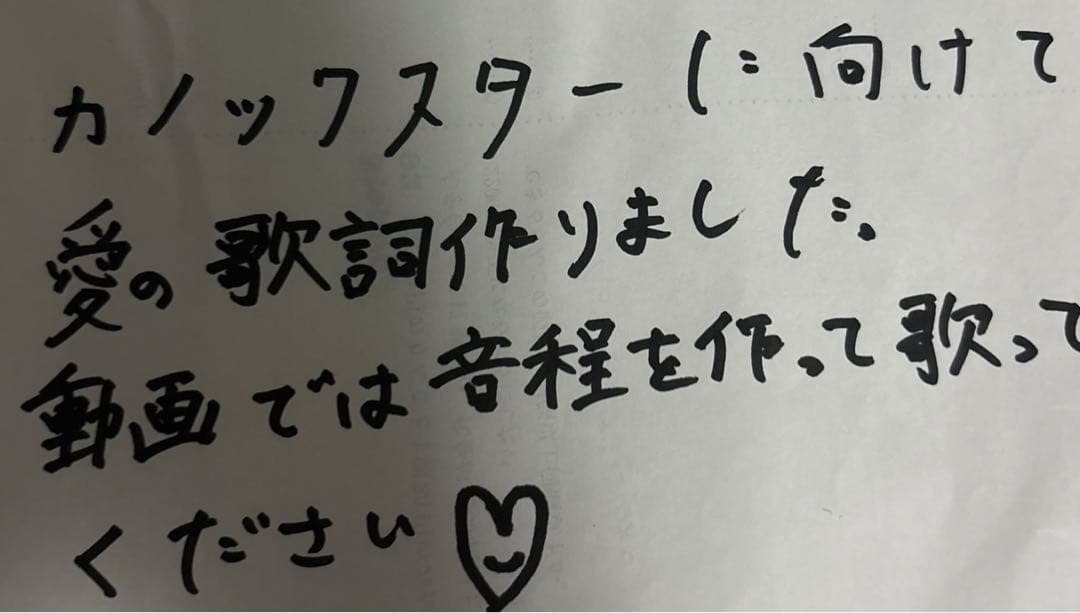 カノックスターに向けて
愛の歌詞作りました。
動画では音程を作って歌って
ください